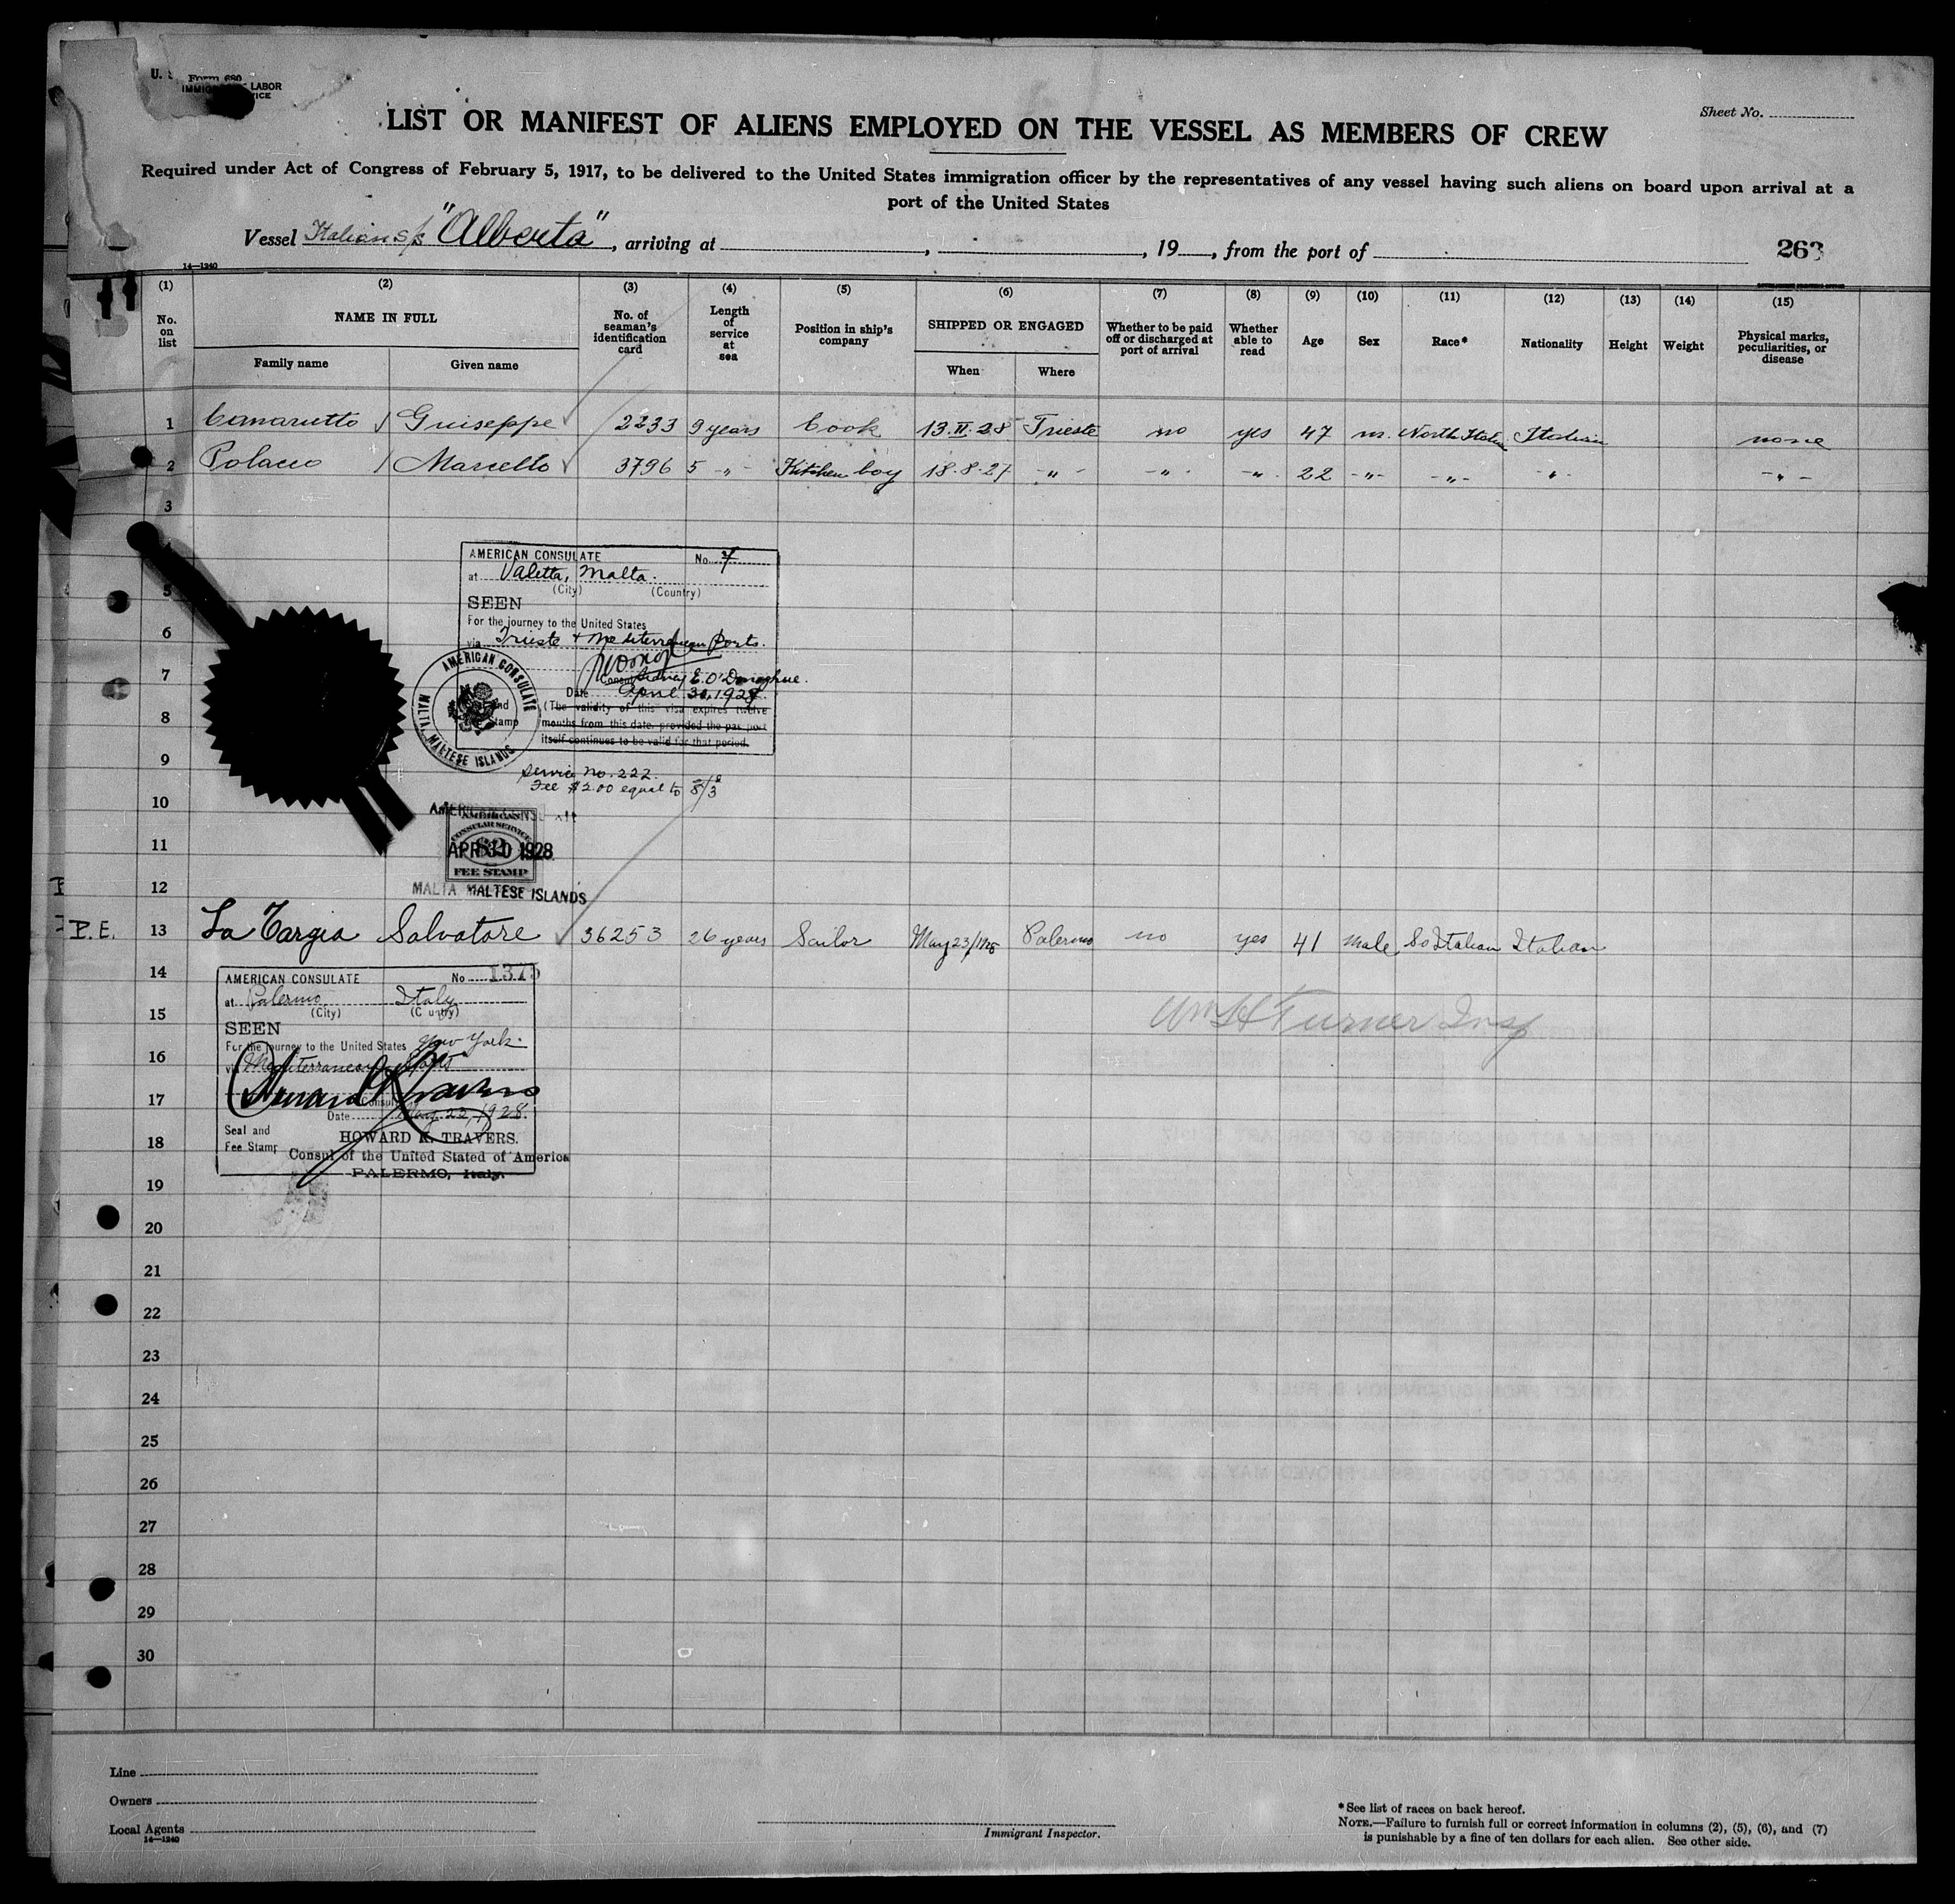 U. S
Form 680
IMMIG LABOR
VICE
Sheet No.
LIST OR MANIFEST OF ALIENS EMPLOYED ON THE VESSEL AS MEMBERS OF CREW
Required under Act of Congress of February 5, 1917, to be delivered to the United States immigration officer by the representatives of any vessel having such aliens on board upon arrival at a
port of the United States
Vessel Italian s/s "Alberta", arriving at , , 19 , from the port of
263
14—1240
(1) (2) (3) (4) (5) (6) (7) (8) (9) (10) (11) (12) (13) (14) (15)
No. on list
NAME IN FULL
Family name Given name
No. of seaman's identification card
Length of service at sea
Position in ship's company
SHIPPED OR ENGAGED
When Where
Whether to be paid off or discharged at port of arrival
Whether able to read
Age
Sex
Race*
Nationality
Height
Weight
Physical marks, peculiarities, or disease
1 Camarutto Guiseppe 2233 9 years Cook 13.II.28 Trieste no yes 47 m. North Italian Italian none
2 Polacco Marcello 3796 5 -"- Kitchen boy 18.8.27 -"- -"- -"- 22 -"- -"- -"- -"-
3
AMERICAN CONSULATE No. 7
at Valetta, Malta.
(City) (Country)
5
SEEN
For the journey to the United States
6
via Trieste + Mediterranean Ports.
AMERICAN CONSULATE
MALTA, MALTESE ISLANDS
7
Consul Sidney E. O'Donoghue.
Date April 30, 1928.
8
(The validity of this visa expires twelve
months from this date, provided the passport
itself continues to be valid for that period.
9
Service No. 222.
Fee $2.00 equal to 8/3
10
AMERICAN
CONSULAR SERVICE
11
$2
APR 30 1928
FEE STAMP
12
MALTA MALTESE ISLANDS
P.E. 13 La Targia Salvatore 36253 26 years Sailor May 23/1928 Palermo no yes 41 male So Italian Italian
14
AMERICAN CONSULATE No 1375
at Palermo, Italy
(City) (Country)
15
Wm H Turner Insp
SEEN
For the journey to the United States New York.
16
via Mediterranean Ports
Howard K Travers
17
Consul
Date May 23, 1928.
Seal and
Fee Stamp
18
HOWARD K. TRAVERS.
Consul of the United Stated of America
PALERMO, Italy.
19
20
21
22
23
24
25
26
27
28
29
30
Line
Owners
Local Agents
14—1240
Immigrant Inspector.
*See list of races on back hereof.
NOTE.—Failure to furnish full or correct information in columns (2), (5), (6), and (7)
is punishable by a fine of ten dollars for each alien. See other side.